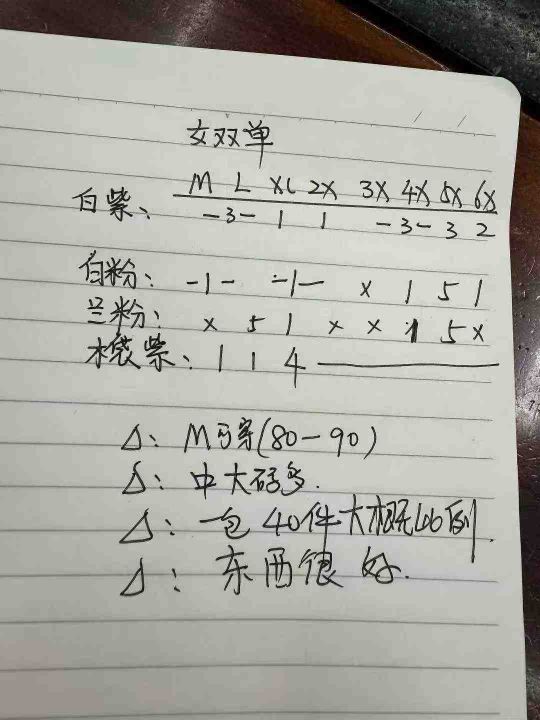 女双单
M L XL 2X 3X 4X 5X 6X
白紫: -3- 1 1 -3- 3 2
白粉: -1- -1- x 1 5 1
兰粉: x 5 1 x x 1 5 x
木袋紫: 1 1 4 ———
△: M可穿(80-90)
△: 中大码多.
△: 一包40件大概比例.
△: 东西很好.